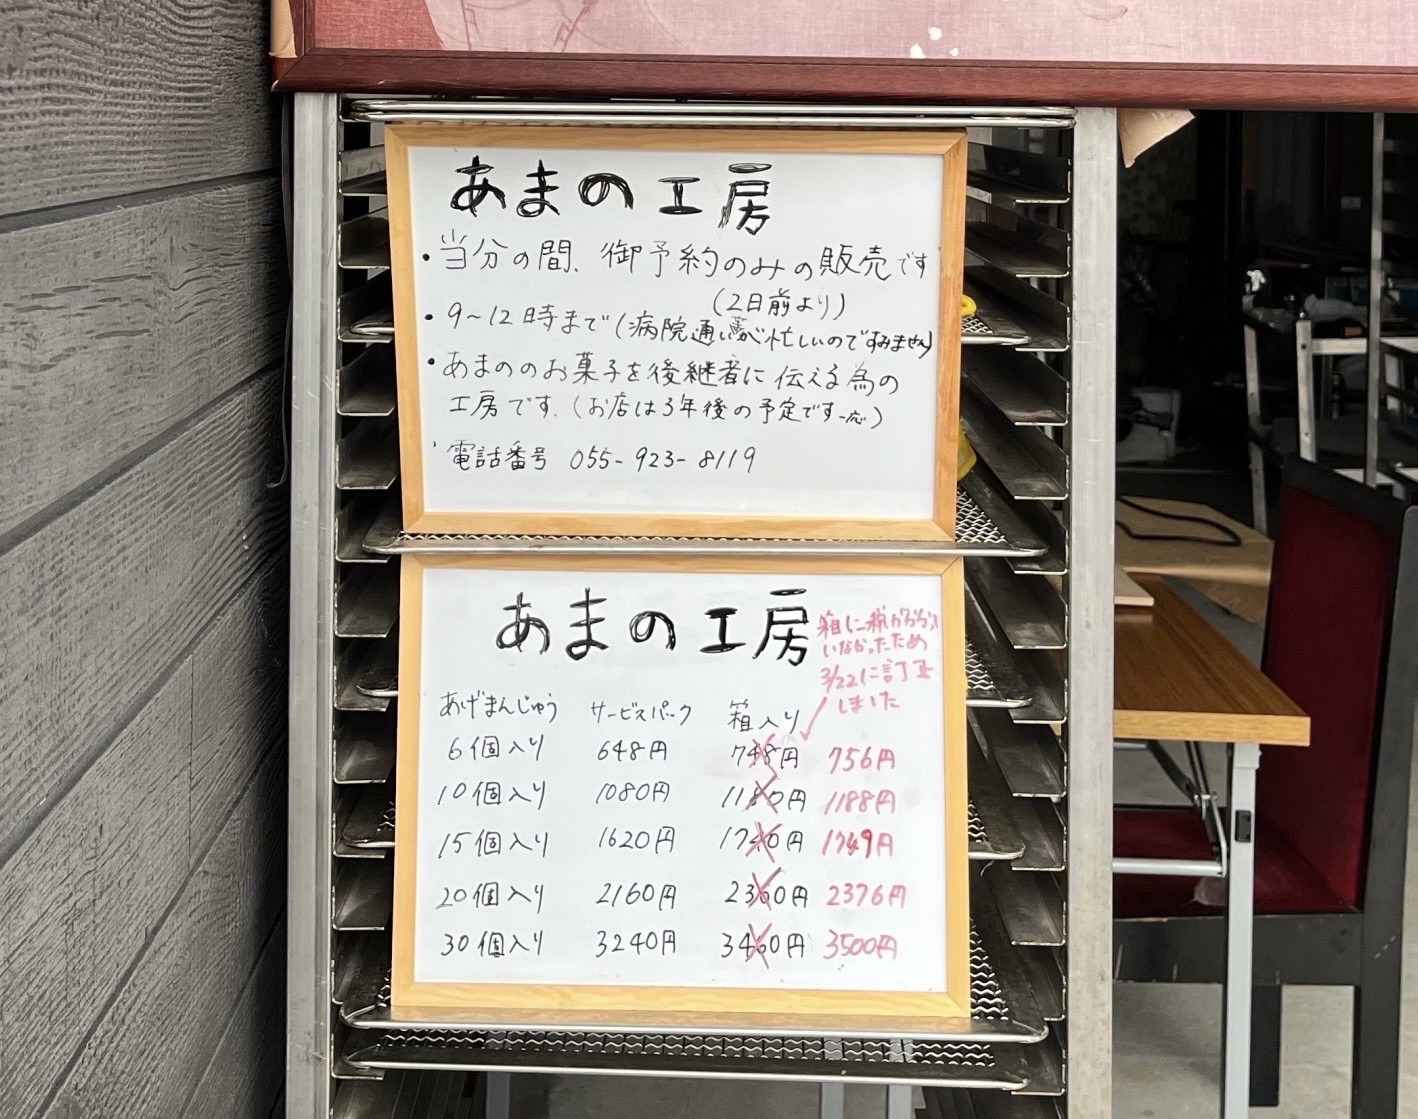 あまの工房
・当分の間、御予約のみの販売です
(2日前より)
・9〜12時まで(病院通いが忙しいのですみません)
・あまののお菓子を後継者に伝える為の
工房です.(お店は3年後の予定です一応)
・電話番号 055-923-8119
あまの工房
箱に税がかかって
いなかったため
3/22に訂正
しました
あげまんじゅう サービスパック 箱入り
6個入り 648円 748円 756円
10個入り 1080円 1180円 1188円
15個入り 1620円 1740円 1749円
20個入り 2160円 2360円 2376円
30個入り 3240円 3460円 3500円